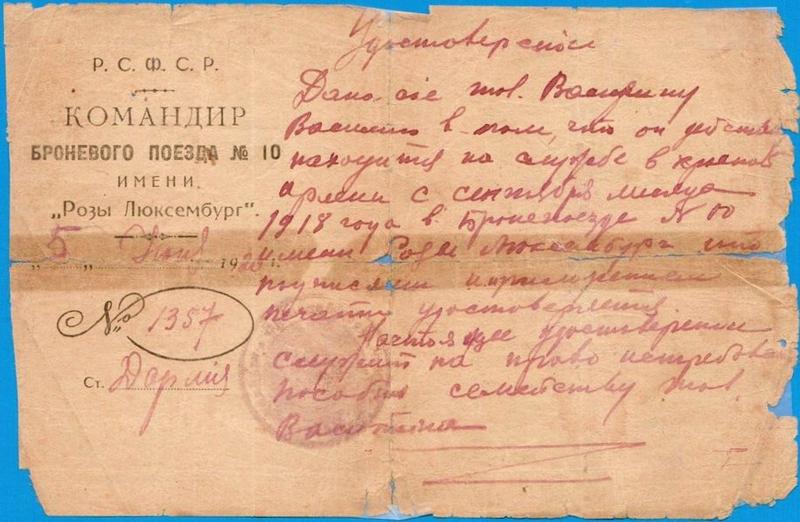 Р. С. Ф. С. Р.
КОМАНДИР
БРОНЕВОГО ПОЕЗДА № 10
ИМЕНИ
„Розы Люксембург“.
„5“ 1920 г.
№ 1357
Ст.
Удостоверение
Дано сие тов.
в том, что он действ
находится на службе в красной
армии с сентября месяца
1918 года в Бронепоезде № 10
имени Розы Люксембург что
подписями и приложением
печати удостоверяется
Настоящее удостоверение
служит на право истребован
пособия семейству тов.